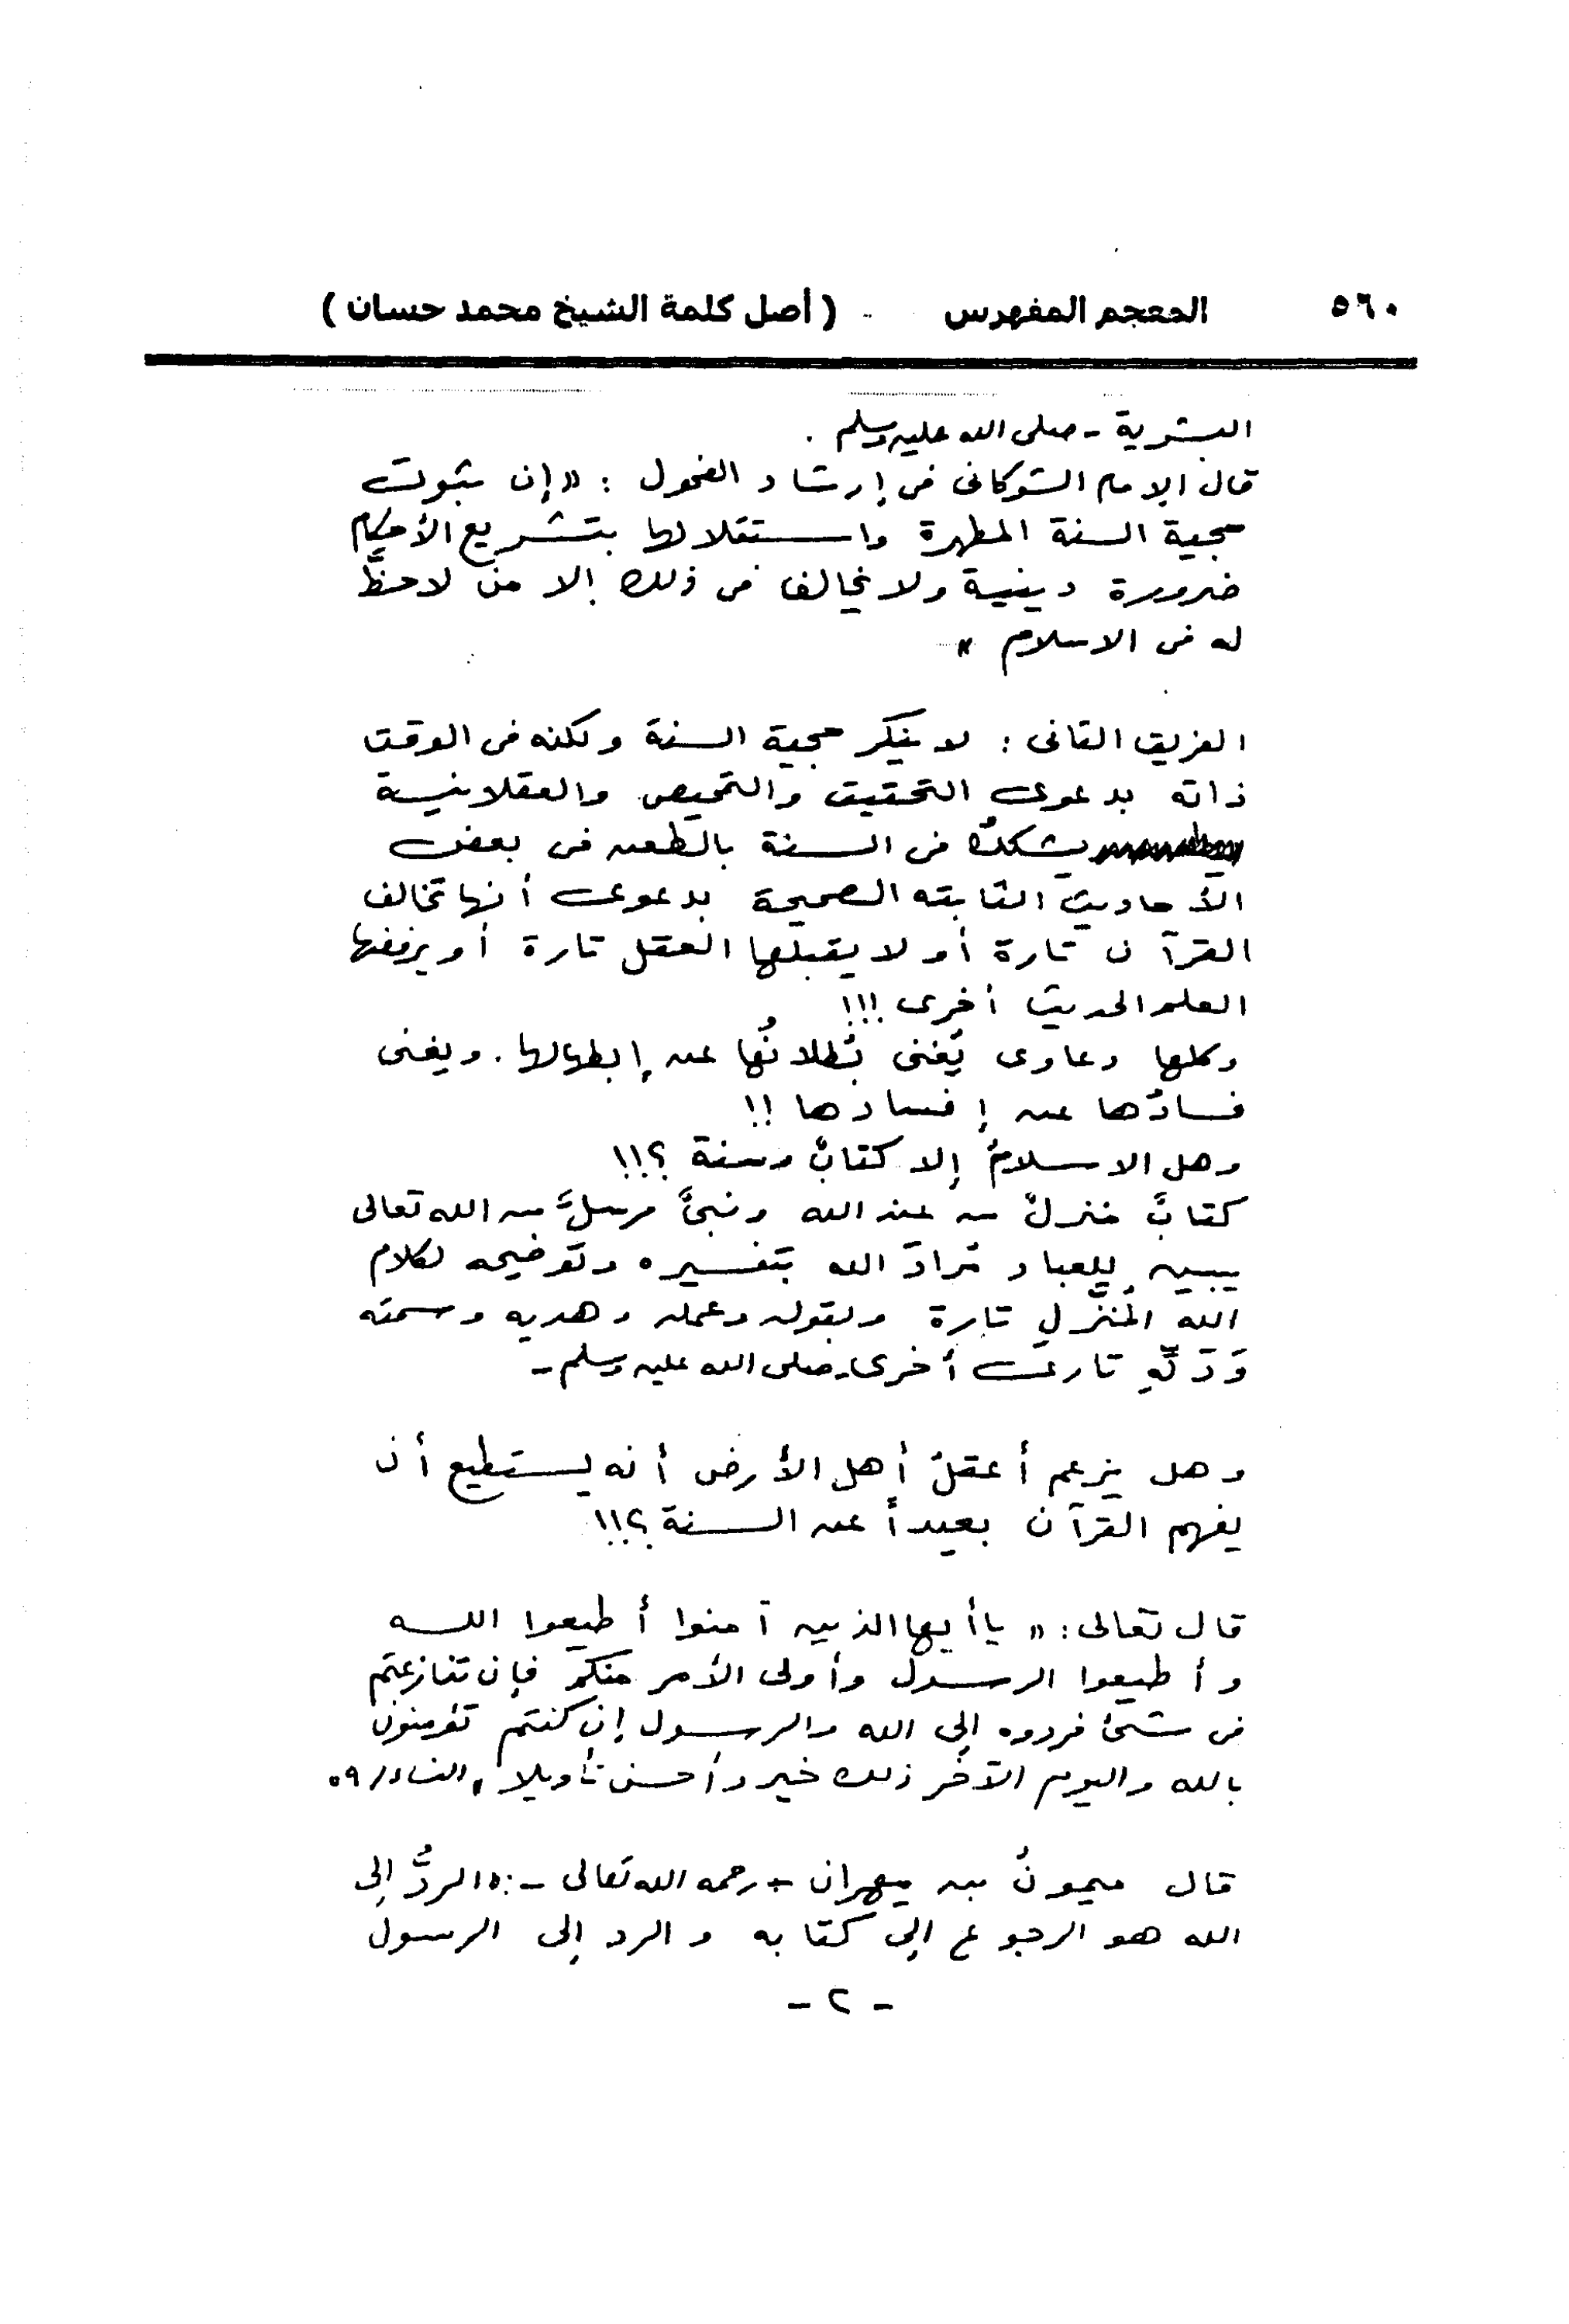 ٥٦٠ المعجم المفهرس - (أصل كلمة الشيخ محمد حسان)
البشرية - صلى الله عليه وسلم .
قال الإمام الشوكانى فى إرشاد الفحول : «إن ثبوت
حجية السنة المطهرة واستقلالها بتشريع الأحكام
ضرورة دينية ولا يخالف فى ذلك إلا من لا حظَّ
له فى الاسلام »
الفريق الثانى : لا ينكر حجية السنة ولكنه فى الوقت
ذاته بدعوى التحقيق والتمحيص والعقلانية
يشككُ فى السنة بالطعن فى بعض
الأحاديث الثابته الصحيحة بدعوى أنها تخالف
القرآن تارة أو لا يقبلها العقل تارة أو يرفضها
العلم الحديث أخرى !!!
وكلها دعاوى يُغنى بُطلانُها عن إبطالها . ويغنى
فسادُها عن إفسادها !!
وهل الاسلامُ إلا كتابٌ وسنة ؟!!
كتابٌ منزلٌ من عند الله ونبىٌّ مرسلٌ من الله تعالى
يبين للعباد مُرادَ الله بتفسيره وتوضيحه لكلام
الله المُنزَّلِ تارة وبقوله وعمله وهديه وسمته
وَدَلِّهِ تارة أخرى - صلى الله عليه وسلم -
وهل يزعم أعقلُ أهل الأرض أنه يستطيع أن
يفهم القرآن بعيداً عن السنة ؟!!
قال تعالى : « ياأيها الذين آمنوا أطيعوا الله
وأطيعوا الرسول وأولى الأمر منكم فإن تنازعتم
فى شئ فردوه إلى الله والرسول إن كنتم تؤمنون
بالله واليوم الآخر ذلك خير وأحسن تأويلا » النساء/٥٩
قال ميمونُ بن مهران - رحمه الله تعالى - : «الردُّ إلى
الله هو الرجوع إلى كتابه والرد إلى الرسول
- ٢ -